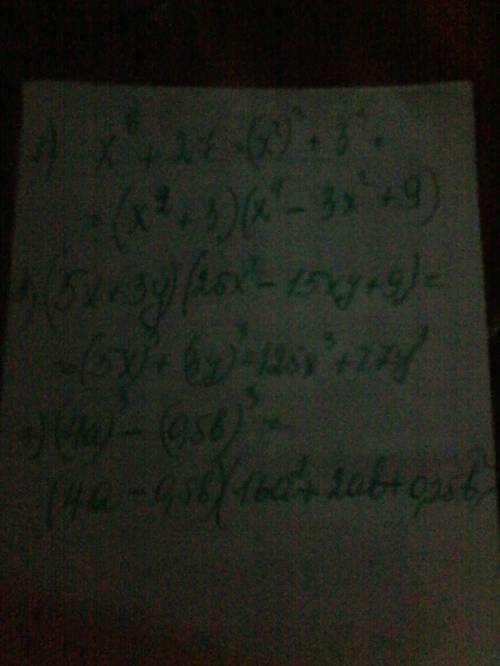 x⁶ + 27 = (x²)³ + 3³ =
= (x² + 3)(x⁴ - 3x² + 9)
(5x + 3y)(25x² - 15xy + 9) =
= (5x)³ + (3y)³ = 125x³ + 27y³
(4a)³ - (0,5b)³ =
(4a - 0,5b)(16a² + 2ab + 0,25b²)